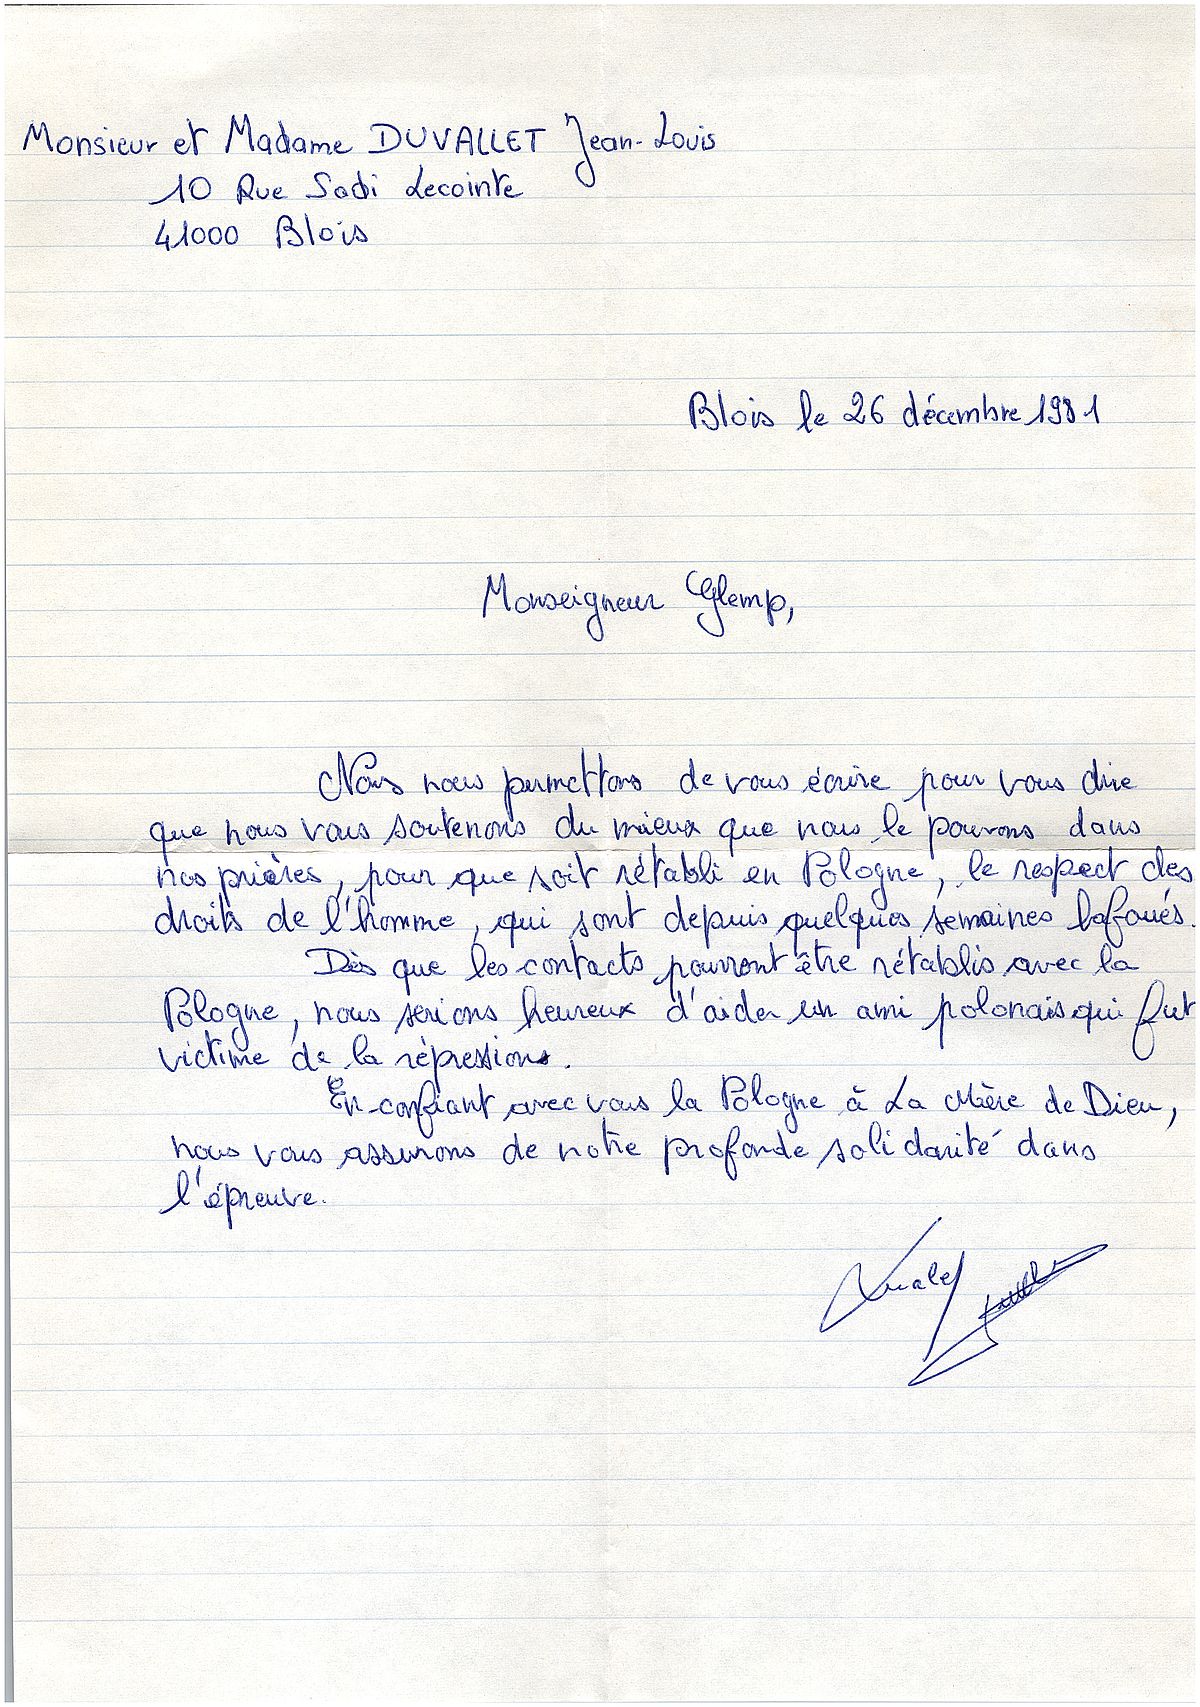 Monsieur et Madame DUVALLET Jean-Louis
10 Rue Sadi Lecointe
41000 Blois
Blois le 26 décembre 1981
Monseigneur Glemp,
Nous nous permettons de vous écrire pour vous dire
que nous vous soutenons du mieux que nous le pouvons dans
nos prières, pour que soit rétabli en Pologne, le respect des
droits de l'homme, qui sont depuis quelques semaines bafoués.
Dès que les contacts pourront être rétablis avec la
Pologne, nous serions heureux d'aider un ami polonais qui fut
victime de la répression.
En confiant avec vous la Pologne à La Mère de Dieu,
nous vous assurons de notre profonde solidarité dans
l'épreuve.